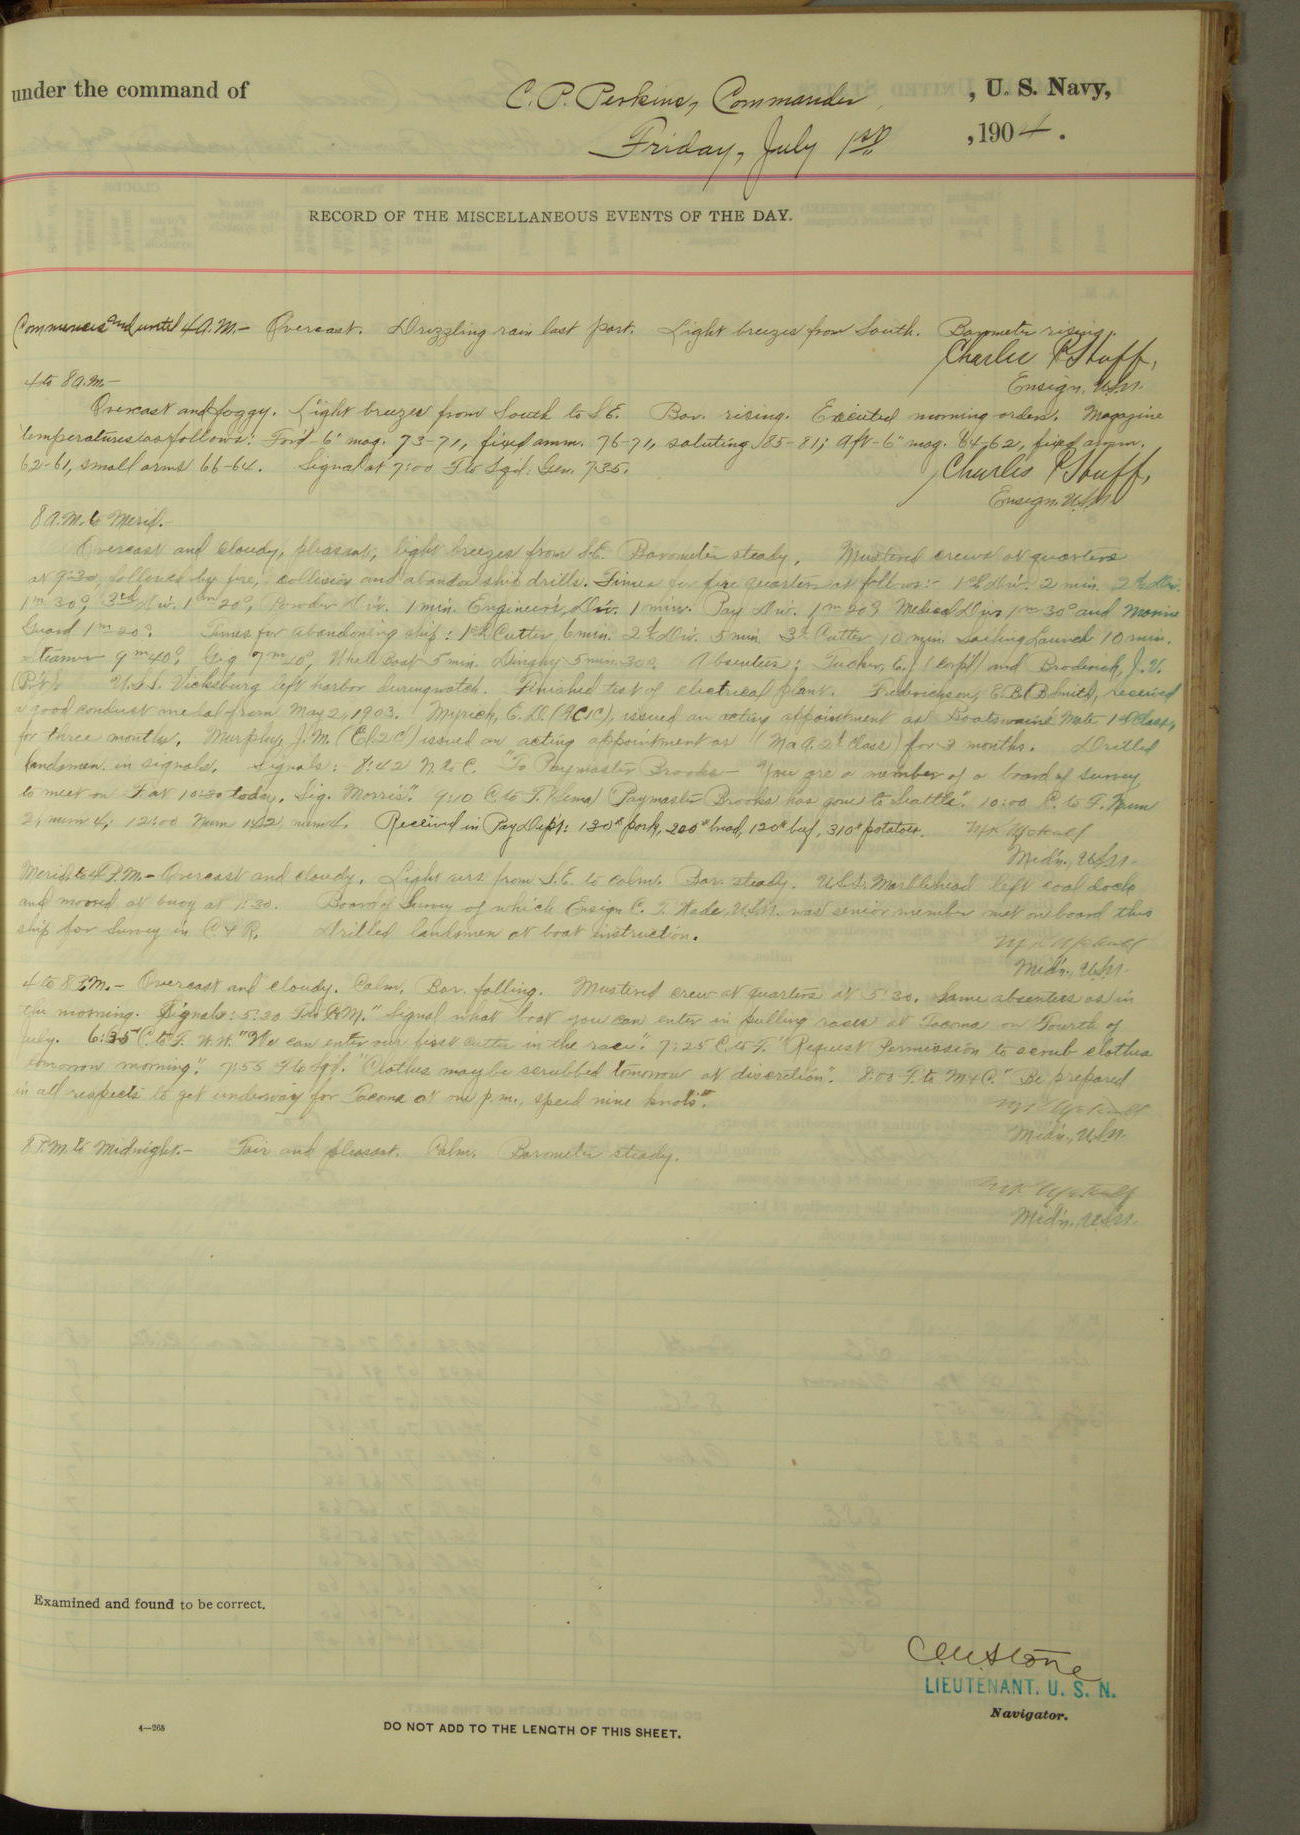 under the command of C. P. Perkins, Commander, U. S. Navy,
Friday, July 1st, 1904.
RECORD OF THE MISCELLANEOUS EVENTS OF THE DAY.
Commences and until 4 A.M.- Overcast. Drizzling rain last part. Light breezes from South. Barometer rising.
Charles P. Huff,
Ensign, U.S.N.
4 to 8 A.M.-
Overcast and foggy. Light breezes from South to S.E. Bar. rising. Executed morning orders. Magazine
temperatures as follows: For'd 6" mag. 73-71, fixed amm. 76-71, saluting 85-81; aft 6" mag. 64-62, fixed amm.
62-61, small arms 66-64. Signal at 7:00 F to Sq'd: Gen. 735.
Charles P. Huff,
Ensign. U.S.N.
8 A.M. to Merid.-
Overcast and cloudy, pleasant, light breezes from S.E. Barometer steady. Mustered crew at quarters
at 9:30, followed by fire, collision and abandon ship drills. Times for fire quarters as follows:- 1st Div. 2 min. 2d Div.
1m 30s, 3rd Div. 1m 20s, Powder Div. 1 min. Engineer's Div. 1 min. Pay Div. 1m 20s Medical Div. 1m 30s and Marine
Guard 1m 20s. Times for abandoning ship: 1st Cutter 6 min. 2d Div. 5 min. 3d Cutter 10 min. Sailing Launch 10 min.
Steamer 9m 40s, Gig 7m 20s, Whale Boat 5 min. Dinghy 5 min. 30s. Absentees: Tucker, E.J. (Corp'l) and Broderick, J.V.
(Pvt). U.S.S. Vicksburg left harbor during watch. Finished test of electrical plant. Frederickson, E.B. (B.smith), received
a good conduct medal from May 2, 1903. Myrick, E.D. , issued an acting appointment as Boatswain's Mate 1st Class,
for three months. Murphy, J.M. (El. 2C) issued an acting appointment as (M a A. 2d Class) for 3 months. Drilled
landsmen in signals. Signals: 8:42 N. to C. "To Paymaster Brooks- You are a member of a board of survey
to meet on F at 10:30 today. Sig. Morris". 9:10 C. to F. "Paymaster Brooks has gone to Seattle". 10:00 C. to F. Num
2, num 4; 12:00 Num 142, num 1. Received in Pay Dept: 130# pork, 200# bread, 120# beef, 310# potatoes.
Mid'n. U.S.N.
Merid. to 4 P.M.- Overcast and cloudy. Light airs from S.E. to calm. Bar. steady. U.S.S. Marblehead left coal dock
and moored at buoy at 1:30. Board of Survey of which Ensign C. T. Wade, U.S.N. was senior member met on board this
ship for Survey in C & R. Drilled landsmen at boat instruction.
Mid'n. U.S.N.
4 to 8 P.M.- Overcast and cloudy. Calm. Bar. falling. Mustered crew at quarters at 5:30. Same absentees as in
the morning. Signals: 5:20 F. to "Signal what boat you can enter in pulling races at Tacoma on Fourth of
July. 6:35 C. to F. W.W. "We can enter our first cutter in the race". 7:25 C. to F. "Request Permission to scrub clothes
tomorrow morning". 7:55 F. to Sq'd. "Clothes may be scrubbed tomorrow at discretion". 8:00 F. to M & C. "Be prepared
in all respects to get underway for Tacoma at one p.m., speed nine knots".
Mid'n., U.S.N.
8 P.M. to Midnight.- Fair and pleasant. Calm. Barometer steady.
Mid'n. U.S.N.
Examined and found to be correct.
C.M. Stone
LIEUTENANT. U. S. N.
Navigator.
4—268
DO NOT ADD TO THE LENGTH OF THIS SHEET.